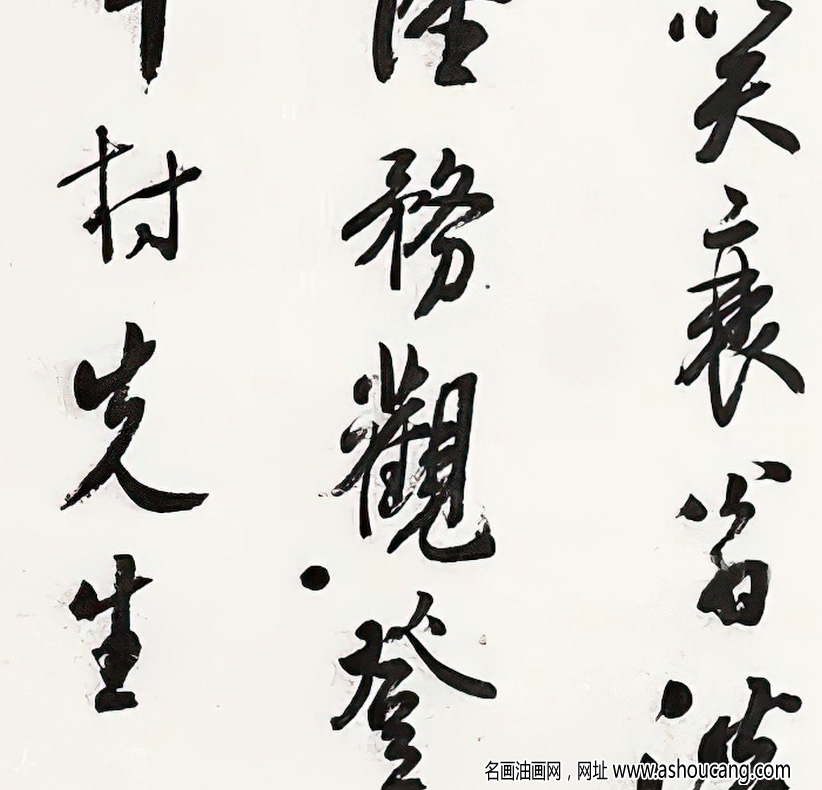 笑衰翁
陸務觀登
村先生
名画油画网，网址 www.ashoucang.com